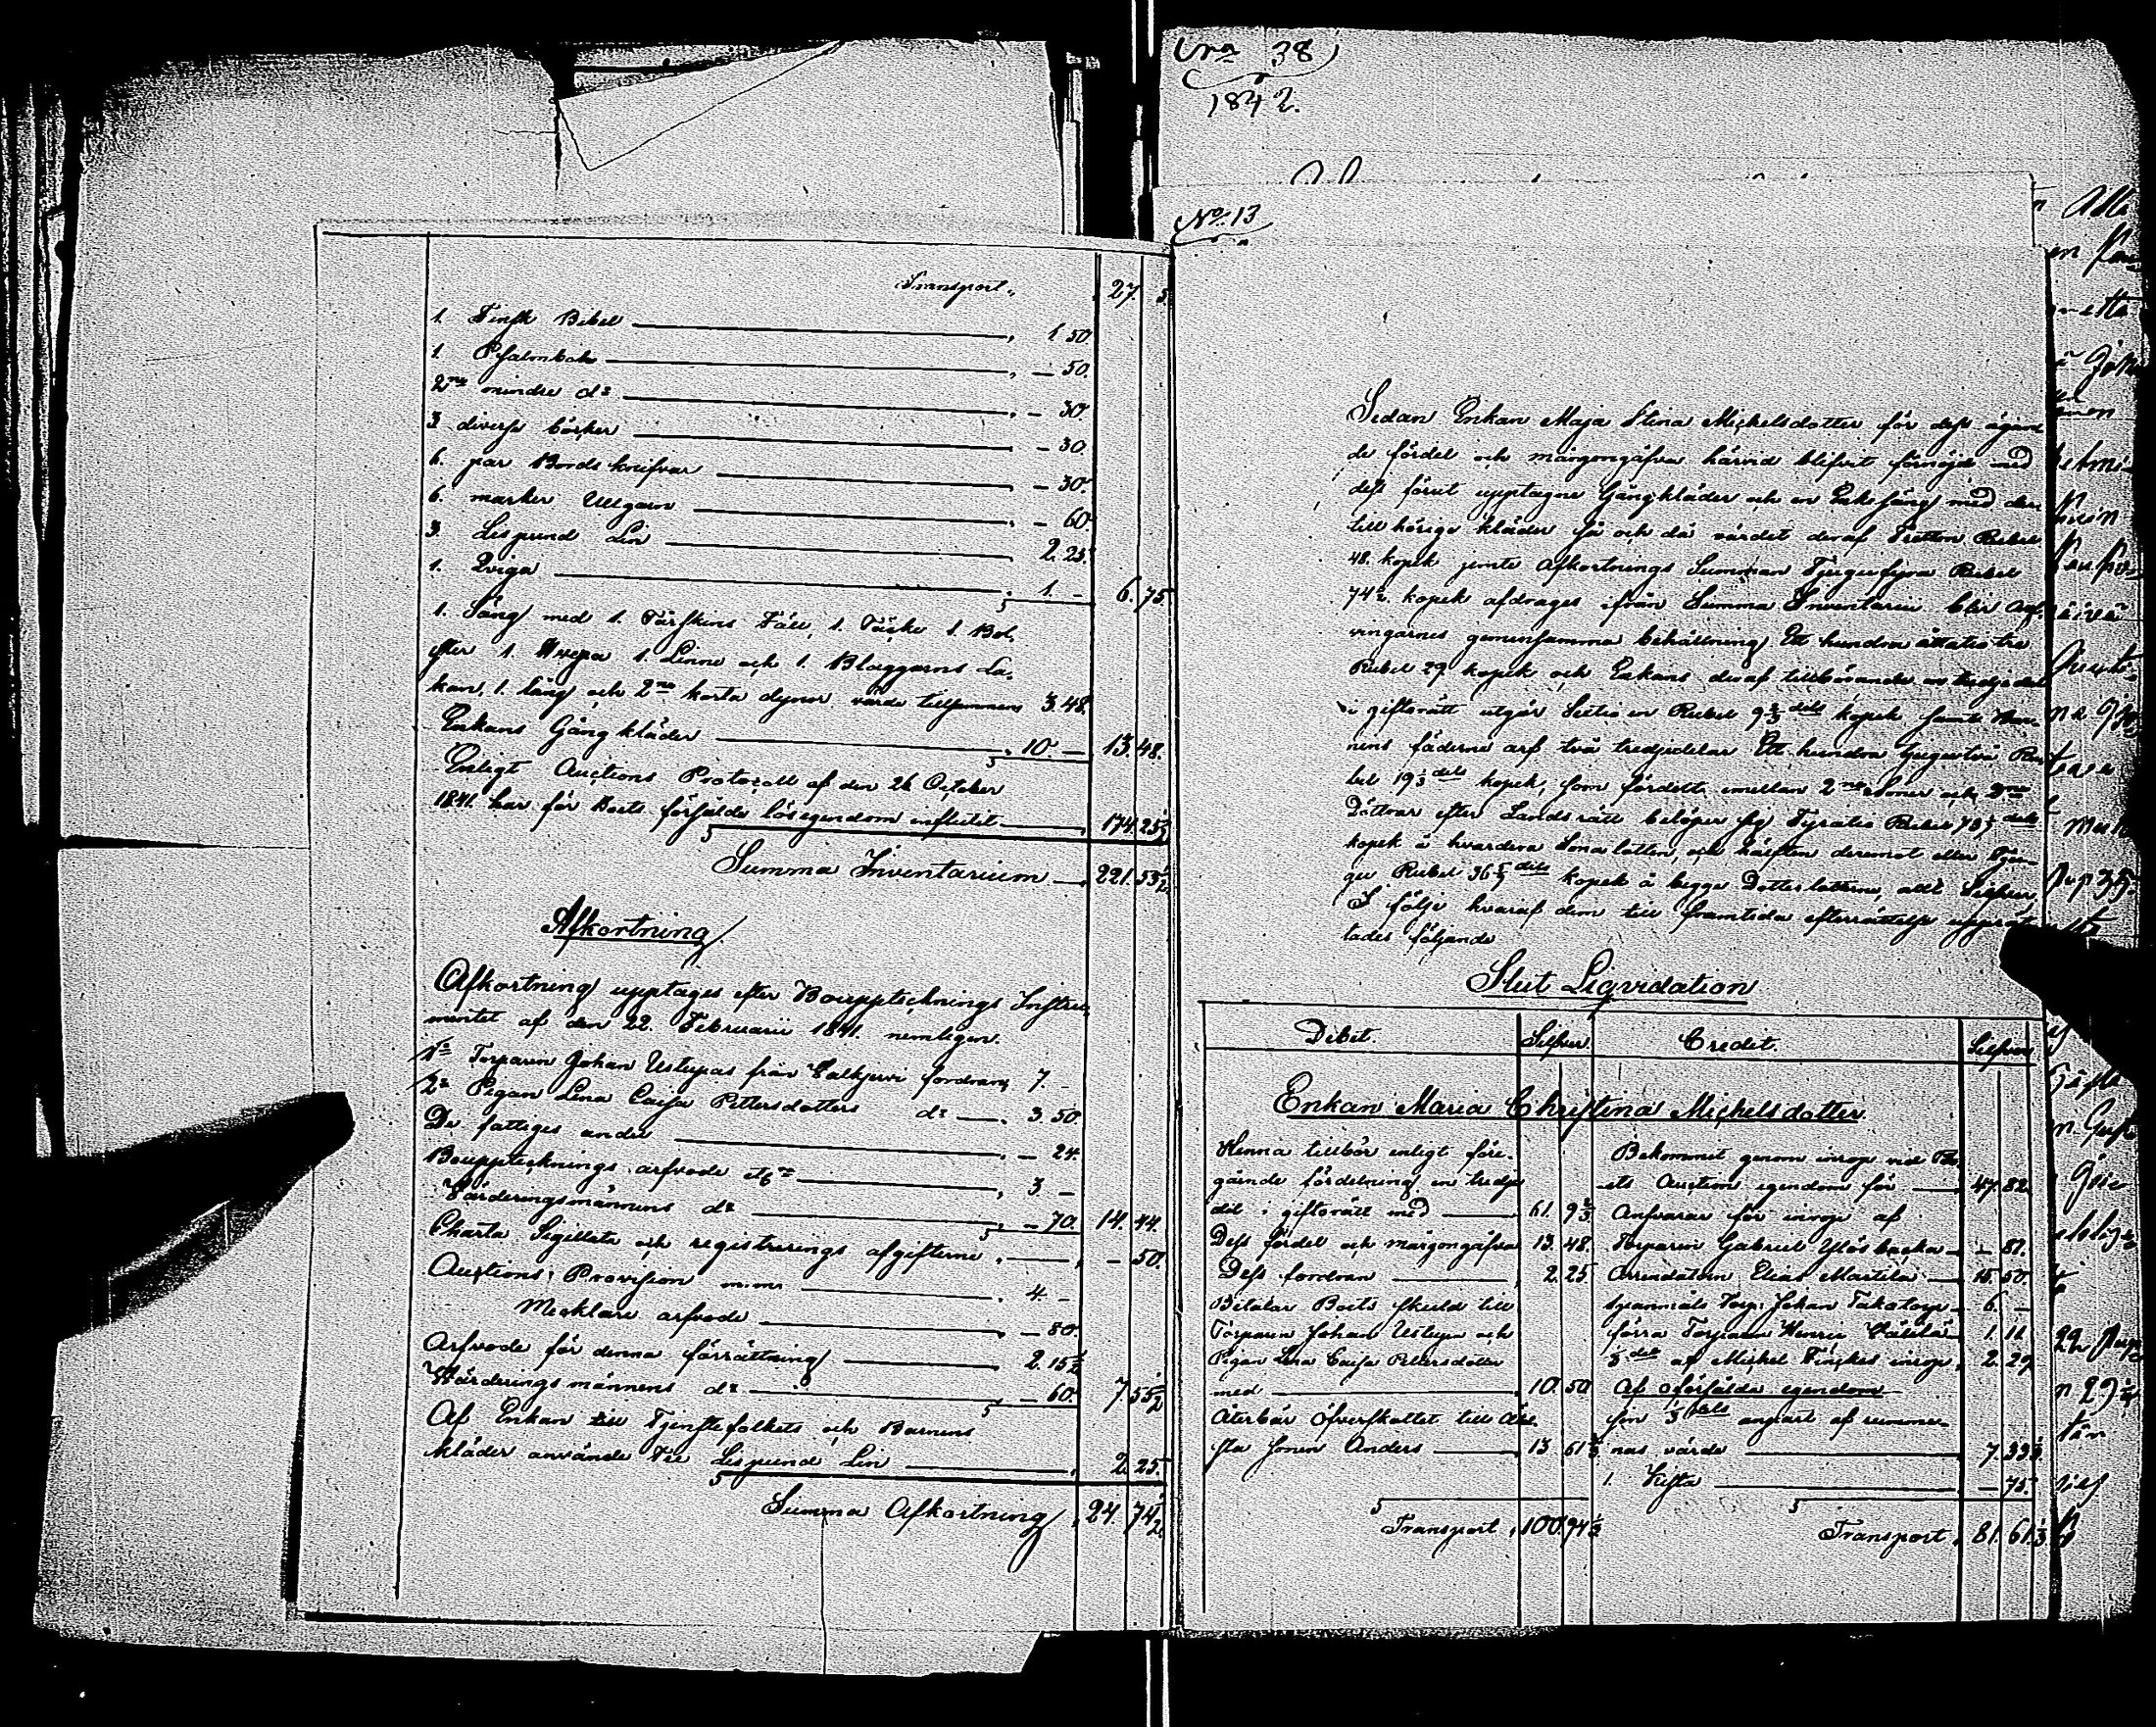 Transport „ 27. 5.
1. Finsk Bibel „ 1 50.
1. Psalmbok „ — 50.
2ne mindre do „ — 30
3 diverse böcker — 30.
6. par Bords knifvar „ — 30.
6. marker Ullgarn „ — 60
3. Lispund Lin 2. 25.
1. Qviga „ 1. — 6. 75
1. Säng med 1. Fårskins Fäll, 1. Täcke 1. Bol,
ster 1. Wepa 1. Linne och 1. Blaggarns La,
kan, 1. lång och 2ne korta dynor värde tillsammans 3. 48.
Enkans Gångkläder „ 10. — 13. 48.
Enligt Auctions Protocoll af den 26 October
1841. har för Boets försålde lösegendom influtit 174. 25 1/2
Summa Inventarium 221. 53 1/2
Afkortning
Afkortning upptages efter Boupptecknings Instru,
mentet af den 22. Februarii 1841. nemligen.
1o Torparen Johan Ustupas från Valkjervi fordran 7. —
2o Pigan Lena Caisa Pettersdotters do 3. 50.
De fattiges andel „ — 24.
Bouppteckningsarfvode etc „ 3 —
Värderingsmännens do „ — 70. 14. 44.
Charta Sigillata och registrerings afgifterne „ — 50.
Auctions Provision m.m. „ 4. —
Mecklare arfvode „ — 80.
Arfvode för denna förrättning 2. 15 1/2
Wärderings männens do — 60. 7. 55 1/2
Af Enkan till Tjenstefolkets och Barnens
kläder använde Tre Lispund Lin „ 2. 25.
Summa Afkortning „ 24. 74 1/2
38
1842.
No 13
Sedan Enkan Maja Stina Michelsdotter för dess ägan
de fördel och morgongåfva härvid blifvit förnöjd med
dess förut upptagne Gångkläder och en Enkesäng med der,
till hörige kläder så och då värdet deraf Tretton Rubel
48. kopek jemte Afkortnings Summan Tjugufyra Rubel
74 1/2. kopek afdrages ifrån Summa Inventarii blir Arf,
vingarnes gemensamma behållning Ett hundra åttatio tre
Rubel 29 kopek och Enkans deraf tillkommande en tredjedel
i giftorätt utgör Sextio en Rubel 9 2/3 dels kopek samt Bar,
nens fäderne arf två tredjedelar Ett hundra tjugutvå Ru
bel 19 1/3 dels kopek, som fördelt emellan 2ne Söner och 2ne
Döttrar efter Landsrätt belöper sig Fyratio Rubel 73 dels
kopek å hvardera Sonalotten, och hälften deremot eller Tju-
gu Rubel 36 dels kopek å begge Dotterlotterne, allt Silfver,
I följe hvaraf dem till framtida efterrättelse upprät
tades följande
Slut Liqvidation
Debet. Silfver. Credit. Silfver
Enkan Maria Christina Michelsdotter.
Henna tillkör enligt före-
gående fördelning en tredje
del i giftorätt med 61. 9 2/3
Dess fördel och morgongåfva 13. 48.
Dess fordran 2. 25
Betalar Boets skuld till
Torparen Johan Ustupa och
Pigan Lena Caisa Pettersdotter
med 10. 50
Återbär öfverskottet till äld,
sta sonen Anders 13 61 2/3
Transport „ 100. 94 1/3
Bekommit genom inrop vid Bo
ets Auction egendom för 47. 82
Ansvarar för inrop af
Torparen Gabriel Ylösbacka — 81.
Arrendatorn Elias Martila 15. 50.
Spanmåls Torp: Johan Takatorp 6. —
förra Torparen Henric 1. 11
1/3 del af Michel Finckes inrop „ 2. 29
Af oförsålde egendom
sin 1/3 dels anpart af summer-
nas värde 7. 33 1/3
1. Kista — 75.
Transport „ 81. 61 1/3